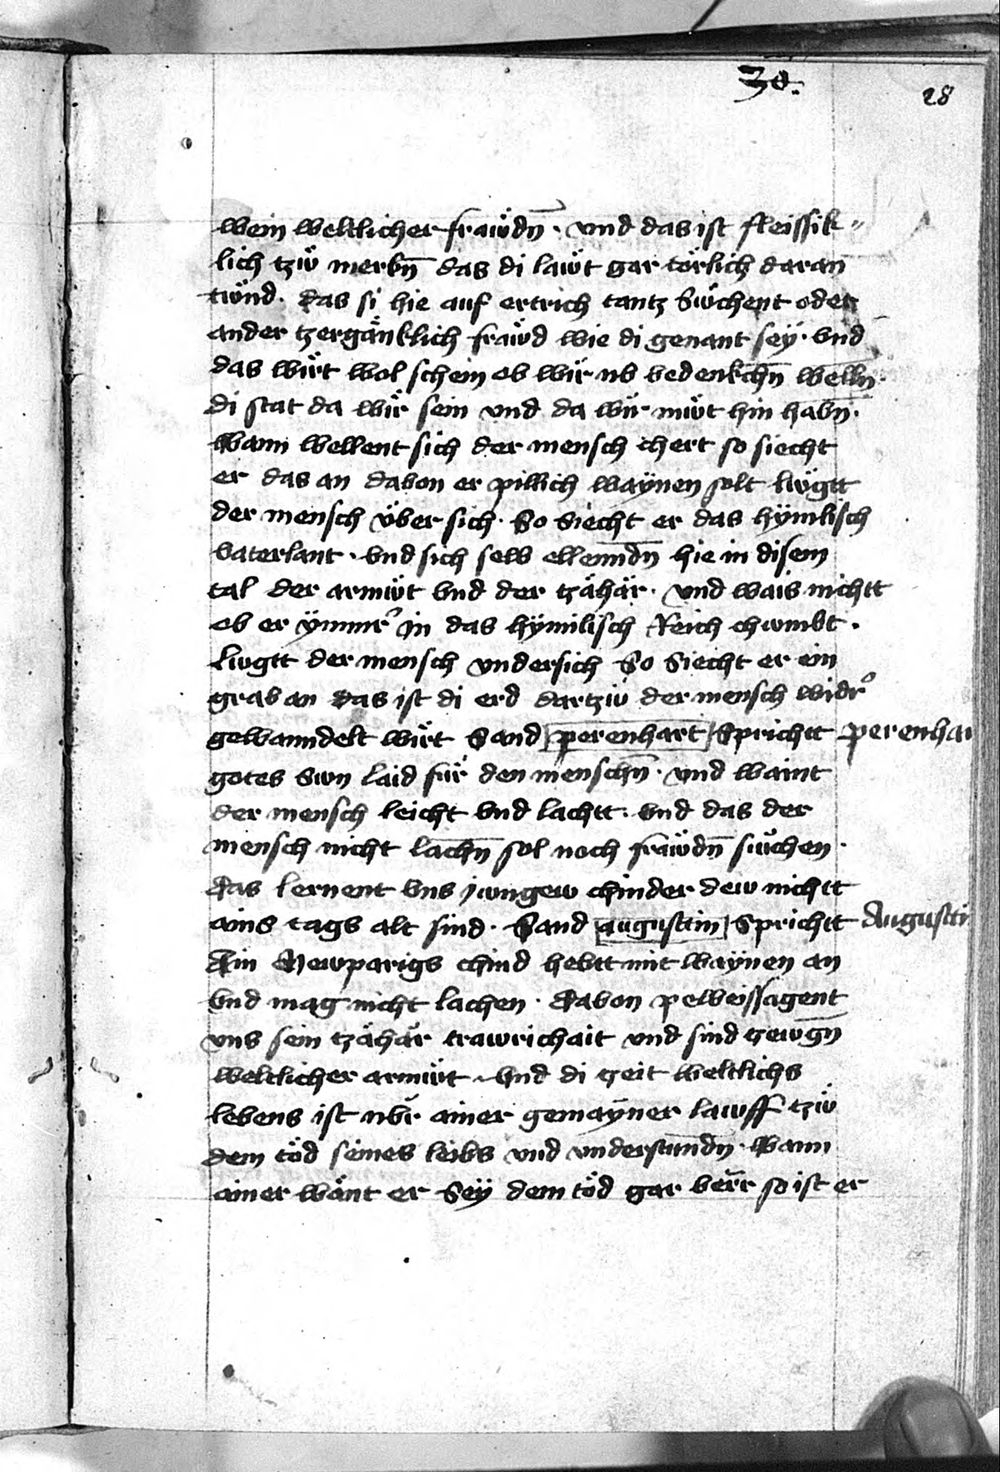 30.
28
wein weltlicher frawdn̄ · vnd das ist fleissik-
lich tzw̋ merkn̄ das di law̋t gar törlich daran
tw̋nd · Das si hie auf ertrich tantz Swchent oder
ander tzergänklich fraw̋d wie di genant seÿ · vnd
das wirt wol schein ob wir vns bedenkchn̄ welln̄ ·
di stat da wir sein vnd da wir mw̋t hin habn̄ ·
Wann wellent sich der mensch chert so siecht
er das an dauon er pillich waÿnen solt lw̋gtt
der mensch v̈ber sich · So Siecht er das hÿmlisch
vaterlant · vnd sich selb ellenndn̄ hie in disem
tal der armw̋t vnd der tzähär · vnd wais nichtt
ob er ÿmmr̄ in das hÿmilisch Reich chumbt ·
Lwgtt der mensch vndersich So Siecht er ein
grab an Das ist di erd dartzw̋ der mensch widr̄
gewanndelt wirt Sand perenhart Sprichtt
perenhar
gotes Swn laid für den menschn̄ · vnd waint
der mensch leicht vnd lachtt · vnd das der
mensch nicht lachn̄ sol noch fraw̋dn̄ suchen ·
Das lernent vns jwngew chinder dew nichtt
ains tags alt sind · Sand augustin Sprichtt
Augusti
Ain Newparigs chind hebtt mit waÿnen an
vnd mag nicht lachen · Dauon peweissagent
vns sein tzähär trawrichait vnd sind tzewgn̄
weltlicher armw̋t · vnd di tzeit weltlichs
lebens ist nür ainer gemaÿner lawff tzw̋
dem töd seines leibs vnd vnderstandn̄ · Wann
ainer wänt er Seÿ dem töd gar verr so ist er